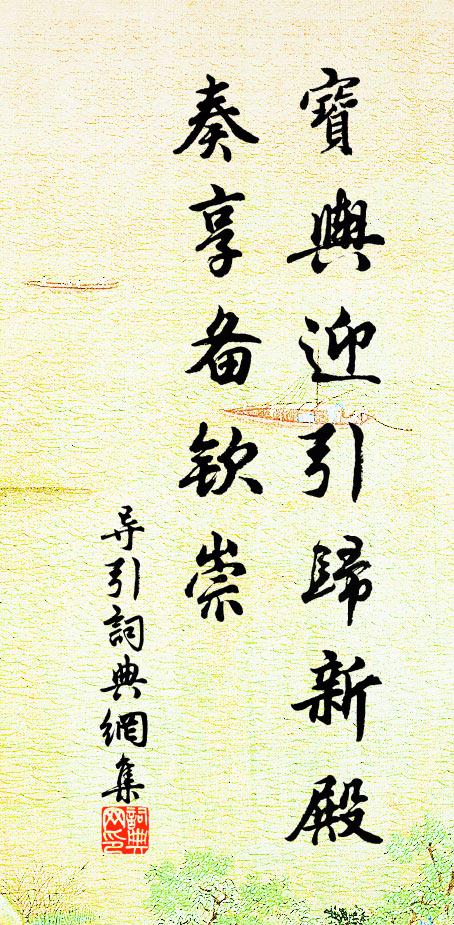 寶輿迎引歸新殿
奏享备欽崇
导引詞典網集
詞典网印